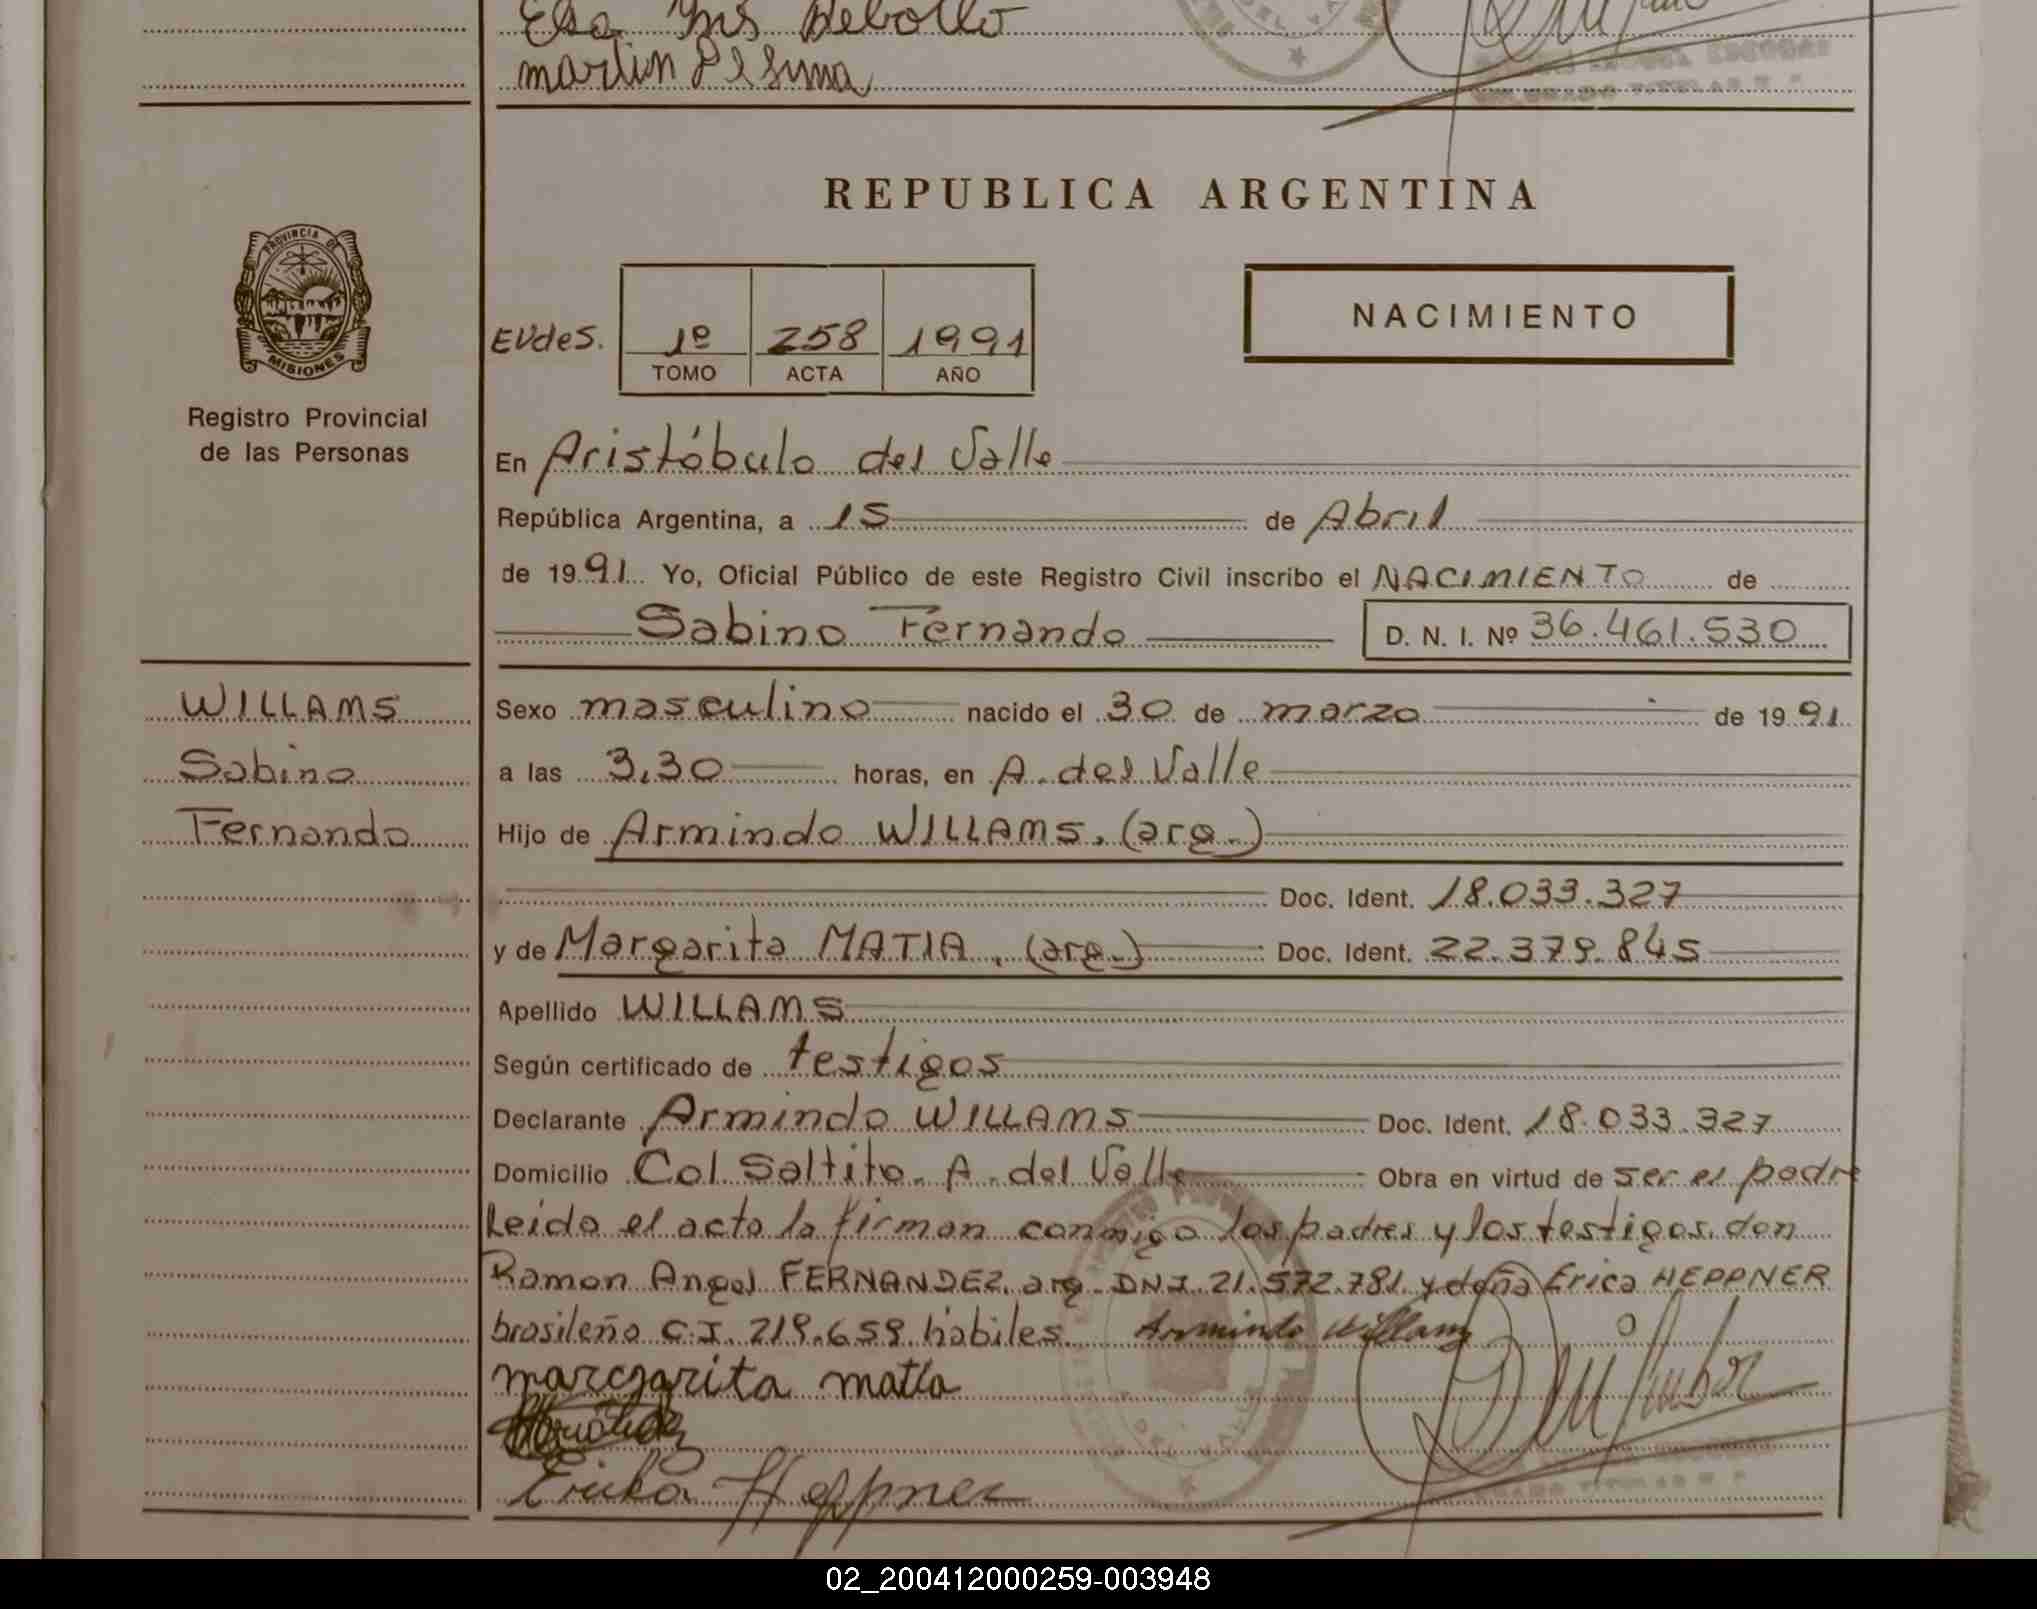 Elsa
martin
REPUBLICA ARGENTINA
PROVINCIA DE
MISIONES
Registro Provincial
de las Personas
EVdeS. 1º 258 1991
TOMO ACTA AÑO
NACIMIENTO
En Aristóbulo del Valle
República Argentina, a 15 de Abril
de 1991 Yo, Oficial Público de este Registro Civil inscribo el NACIMIENTO de
Sabino Fernando D. N. I. Nº 36.461.530
WILLAMS
Sabino
Fernando
Sexo masculino nacido el 30 de marzo de 1991
a las 3,30 horas, en A. del Valle
Hijo de Armindo WILLAMS. (arg.)
Doc. Ident. 18.033.327
y de Margarita MATIA. (arg.) Doc. Ident. 22.379.845
Apellido WILLAMS
Según certificado de testigos
Declarante Armindo WILLAMS Doc. Ident. 18.033.327
Domicilio Col. Saltito. A. del Valle Obra en virtud de ser el padre
Leida el acta la firman conmigo los padres y los testigos. don
Ramon Angel FERNANDEZ. arg. DNI. 21.572.781. y doña Erica HEPPNER
brasileña C.I. 219.659 hábiles. Armindo Willams
margarita matia
Erika Heppner
DEL VALLE
02_200412000259-003948